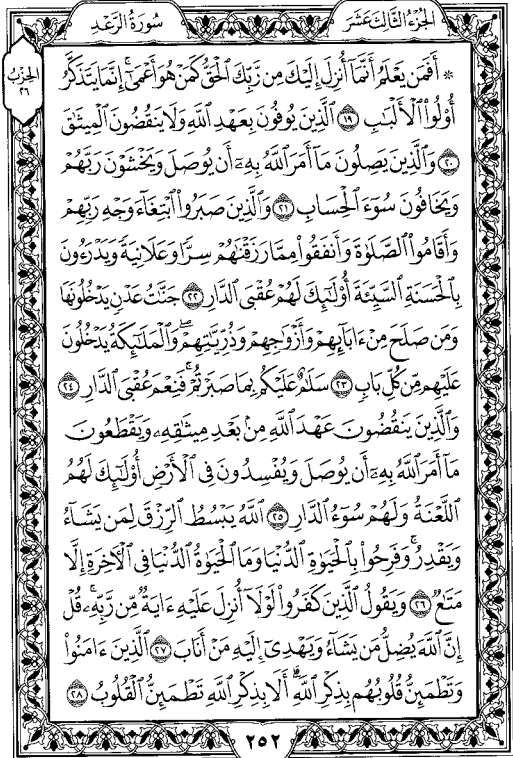 الجزء الثالث عشر
سورة الرعد
الحزب
٢٦
۞ أَفَمَن يَعْلَمُ أَنَّمَآ أُنزِلَ إِلَيْكَ مِن رَّبِّكَ ٱلْحَقُّ كَمَنْ هُوَ أَعْمَىٰٓ ۚ إِنَّمَا يَتَذَكَّرُ
أُو۟لُوا۟ ٱلْأَلْبَٰبِ ۝١٩ ٱلَّذِينَ يُوفُونَ بِعَهْدِ ٱللَّهِ وَلَا يَنقُضُونَ ٱلْمِيثَٰقَ
۝٢٠ وَٱلَّذِينَ يَصِلُونَ مَآ أَمَرَ ٱللَّهُ بِهِۦٓ أَن يُوصَلَ وَيَخْشَوْنَ رَبَّهُمْ
وَيَخَافُونَ سُوٓءَ ٱلْحِسَابِ ۝٢١ وَٱلَّذِينَ صَبَرُوا۟ ٱبْتِغَآءَ وَجْهِ رَبِّهِمْ
وَأَقَامُوا۟ ٱلصَّلَوٰةَ وَأَنفَقُوا۟ مِمَّا رَزَقْنَٰهُمْ سِرًّا وَعَلَانِيَةً وَيَدْرَءُونَ
بِٱلْحَسَنَةِ ٱلسَّيِّئَةَ أُو۟لَٰٓئِكَ لَهُمْ عُقْبَى ٱلدَّارِ ۝٢٢ جَنَّٰتُ عَدْنٍ يَدْخُلُونَهَا
وَمَن صَلَحَ مِنْ ءَابَآئِهِمْ وَأَزْوَٰجِهِمْ وَذُرِّيَّٰتِهِمْ ۖ وَٱلْمَلَٰٓئِكَةُ يَدْخُلُونَ
عَلَيْهِم مِّن كُلِّ بَابٍ ۝٢٣ سَلَٰمٌ عَلَيْكُم بِمَا صَبَرْتُمْ ۚ فَنِعْمَ عُقْبَى ٱلدَّارِ ۝٢٤
وَٱلَّذِينَ يَنقُضُونَ عَهْدَ ٱللَّهِ مِنۢ بَعْدِ مِيثَٰقِهِۦ وَيَقْطَعُونَ
مَآ أَمَرَ ٱللَّهُ بِهِۦٓ أَن يُوصَلَ وَيُفْسِدُونَ فِى ٱلْأَرْضِ أُو۟لَٰٓئِكَ لَهُمُ
ٱللَّعْنَةُ وَلَهُمْ سُوٓءُ ٱلدَّارِ ۝٢٥ ٱللَّهُ يَبْسُطُ ٱلرِّزْقَ لِمَن يَشَآءُ
وَيَقْدِرُ ۚ وَفَرِحُوا۟ بِٱلْحَيَوٰةِ ٱلدُّنْيَا وَمَا ٱلْحَيَوٰةُ ٱلدُّنْيَا فِى ٱلْءَاخِرَةِ إِلَّا
مَتَٰعٌ ۝٢٦ وَيَقُولُ ٱلَّذِينَ كَفَرُوا۟ لَوْلَآ أُنزِلَ عَلَيْهِ ءَايَةٌ مِّن رَّبِّهِۦ ۗ قُلْ
إِنَّ ٱللَّهَ يُضِلُّ مَن يَشَآءُ وَيَهْدِىٓ إِلَيْهِ مَنْ أَنَابَ ۝٢٧ ٱلَّذِينَ ءَامَنُوا۟
وَتَطْمَئِنُّ قُلُوبُهُم بِذِكْرِ ٱللَّهِ ۗ أَلَا بِذِكْرِ ٱللَّهِ تَطْمَئِنُّ ٱلْقُلُوبُ ۝٢٨
٢٥٢